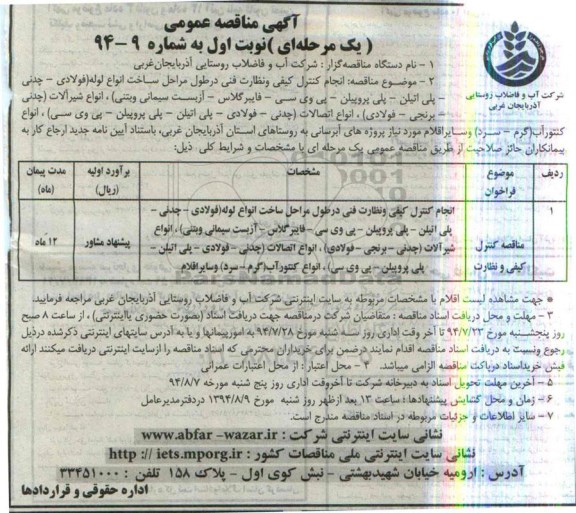 آگهی مناقصه عمومی
( یک مرحله‌ای ) نوبت اول به شماره ۹-۹۴
شرکت آب و فاضلاب روستایی
آذربایجان غربی
۱ - نام دستگاه مناقصه‌گزار : شرکت آب و فاضلاب روستایی آذربایجان‌غربی
۲ - موضوع مناقصه: انجام کنترل کیفی ونظارت فنی درطول مراحل ساخت انواع لوله(فولادی - چدنی
- پلی اتیلن - پلی پروپیلن - پی وی سی - فایبرگلاس - آزبست سیمانی وبتنی) ، انواع شیرآلات (چدنی
- برنجی - فولادی) ، انواع اتصالات (چدنی - فولادی - پلی اتیلن - پلی پروپیلن - پی وی سی) ، انواع
کنتورآب(گرم - سرد) وسایراقلام مورد نیاز پروژه های آبرسانی به روستاهای استان آذربایجان غربی، باستناد آیین نامه جدید ارجاع کار به
پیمانکاران حائز صلاحیت از طریق مناقصه عمومی یک مرحله ای با مشخصات و شرایط کلی ذیل:
ردیف | موضوع فراخوان | مشخصات | برآورد اولیه (ریال) | مدت پیمان (ماه)
۱ | مناقصه کنترل کیفی و نظارت | انجام کنترل کیفی ونظارت فنی درطول مراحل ساخت انواع لوله(فولادی - چدنی -
پلی اتیلن - پلی پروپیلن - پی وی سی - فایبرگلاس - آزبست سیمانی وبتنی) ، انواع
شیرآلات (چدنی - برنجی - فولادی) ، انواع اتصالات (چدنی - فولادی - پلی اتیلن -
پلی پروپیلن - پی وی سی) ، انواع کنتورآب(گرم - سرد) وسایراقلام | پیشنهاد مشاور | ۱۲ ماه
* جهت مشاهده لیست اقلام با مشخصات مربوطه به سایت اینترنتی شرکت آب و فاضلاب روستایی آذربایجان غربی مراجعه فرمایید.
۳ - مهلت و محل دریافت اسناد مناقصه : متقاضیان شرکت درمناقصه جهت دریافت اسناد (بصورت حضوری یااینترنتی) ، از ساعت ۸ صبح
روز پنجشنبه مورخ ۹۴/۷/۲۳ تا آخر وقت اداری روز سه شنبه مورخ ۹۴/۷/۲۸ به امورپیمانها و یا به آدرس سایتهای اینترنتی ذکرشده درذیل
رجوع ونسبت به دریافت اسناد مناقصه اقدام نمایند درضمن برای خریداران محترمی که اسناد مناقصه را ازسایت اینترنتی دریافت میکنند ارائه
فیش خریداسناد دریافت مناقصه الزامی میباشد. ۴ - محل اعتبار : از محل اعتبارات عمرانی
۵ - آخرین مهلت تحویل اسناد به دبیرخانه شرکت تا آخروقت اداری روز پنج شنبه مورخه ۹۴/۸/۷
۶ - زمان و محل گشایش پیشنهادها : ساعت ۱۳ بعد ازظهر روز شنبه مورخ ۱۳۹۴/۸/۹ دردفترمدیرعامل
۷ - سایر اطلاعات و جزئیات مربوطه در اسناد مناقصه مندرج است.
نشانی سایت اینترنتی شرکت : www.abfar -wazar.ir
نشانی سایت اینترنتی ملی مناقصات کشور : http :// iets.mporg.ir
آدرس : ارومیه خیابان شهیدبهشتی - نبش کوی اول - پلاک ۱۵۸ تلفن : ۳۳۴۵۱۰۰۰
اداره حقوقی و قراردادها